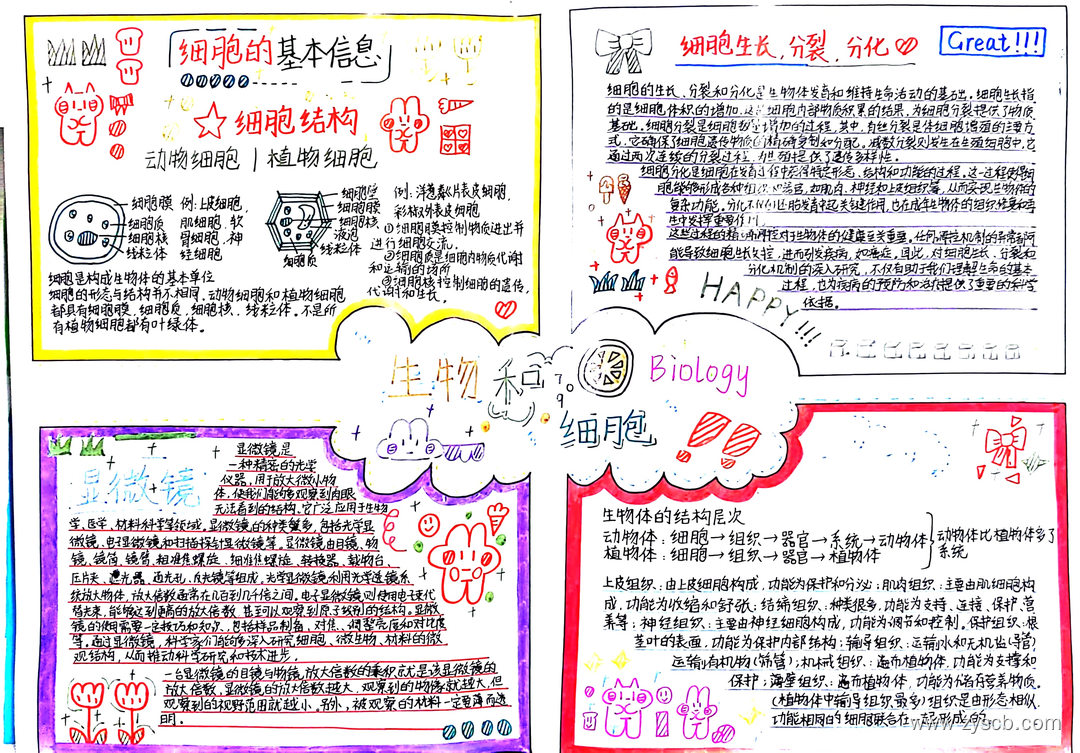 细胞的基本信息
☆细胞结构
动物细胞 | 植物细胞
细胞膜
细胞质
细胞核
线粒体
例:上皮细胞,
肌细胞,软
骨细胞,神
经细胞
细胞壁
细胞膜
细胞核
液泡
线粒体
细胞质
例:洋葱鳞片表皮细胞,
彩椒外表皮细胞
①细胞膜控制物质进出并
进行细胞交流.
②细胞质是细胞内物质代谢
和运输的场所
③细胞核控制细胞的遗传,
代谢和生长。
细胞是构成生物体的基本单位
细胞的形态与结构并不相同,动物细胞和植物细胞
都具有细胞膜,细胞质,细胞核、线粒体。不是所
有植物细胞都有叶绿体。
细胞生长,分裂,分化
Great!!!
细胞的生长、分裂和分化是生物体发育和维持生命活动的基础。细胞生长指
的是细胞体积的增加,这是细胞内部物质积累的结果,为细胞分裂提供了物质
基础。细胞分裂是细胞数量增加的过程,其中,有丝分裂是体细胞增殖的主要方
式,它确保了细胞遗传物质的精确复制和分配。减数分裂则发生在生殖细胞中,它
通过两次连续的分裂过程,为后代提供了遗传多样性。
细胞分化是细胞在发育过程中获得特定形态、结构和功能的过程。这一过程使得细
胞能够形成各种组织和器官,如肌肉、神经和上皮组织等,从而实现生物体的
复杂功能。分化不仅在胚胎发育中起关键作用,也在成年生物体的组织修复和再
生中发挥重要作用
这些过程的精确调控对于生物体的健康至关重要。任何调控机制的异常都可
能导致细胞生长失控,进而引发疾病,如癌症。因此,对细胞生长、分裂和
分化机制的深入研究,不仅有助于我们理解生命的基本
过程,也为疾病的预防和治疗提供了重要的科学
依据。
HAPPY!!!
生物和
细胞
Biology
显微镜
显微镜是
一种精密的光学
仪器,用于放大微小物
体,使我们能够观察到肉眼
无法看到的结构。它广泛应用于生物
学、医学、材料科学等领域。显微镜的种类繁多,包括光学显
微镜、电子显微镜和扫描探针显微镜等。显微镜由目镜、物
镜、镜筒、镜臂、粗准焦螺旋、细准焦螺旋、转换器、载物台、
压片夹、遮光器、通光孔、反光镜等组成。光学显微镜利用光学透镜系
统放大物体,放大倍数通常在几百到几千倍之间。电子显微镜则使用电子束代
替光束,能够达到更高的放大倍数,甚至可以观察到原子级别的结构。显微
镜的使用需要一定技巧和知识,包括样品制备、对焦、调整亮度和对比度
等。通过显微镜,科学家们能够深入研究细胞、微生物、材料的微
观结构,从而推动科学研究和技术进步。
一台显微镜的目镜与物镜,放大倍数的乘积就是该显微镜的
放大倍数,显微镜的放大倍数越大,观察到的物像就越大,但
观察到的视野范围就越小。另外,被观察的材料一定要薄而透
明。
生物体的结构层次
动物体:细胞→组织→器官→系统→动物体
植物体:细胞→组织→器官→植物体
动物体比植物体多了
系统
上皮组织:由上皮细胞构成,功能为保护和分泌;肌肉组织:主要由肌细胞构
成,功能为收缩和舒张,结缔组织:种类很多,功能为支持、连接、保护、营
养等;神经组织:主要由神经细胞构成,功能为调节和控制。保护组织:根
茎叶的表面,功能为保护内部结构;输导组织:运输水和无机盐(导管),
运输有机物(筛管);机械组织:遍布植物体,功能为支撑和
保护;薄壁组织:遍布植物体,功能为储存营养物质。
(植物体中输导组织最多)组织是由形态相似
功能相同的细胞联合在一起形成的。
www.zyscb.com